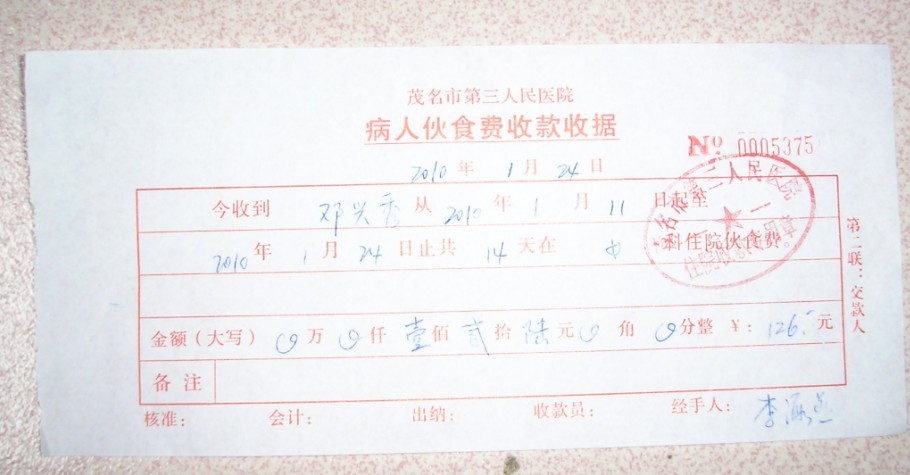 茂名市第三人民医院
病人伙食费收款收据
Nº 0005375
2010年1月24日
今收到 邓兴秀 从 2010年1月11日起至
2010年1月24日止共14天在 科住院伙食费
金额(大写) 0万0仟壹佰贰拾陆元0角0分整 ¥:126.-元
备注
核准: 会计: 出纳: 收款员: 经手人: 李
第二联:交款人
茂名市第三人民医院